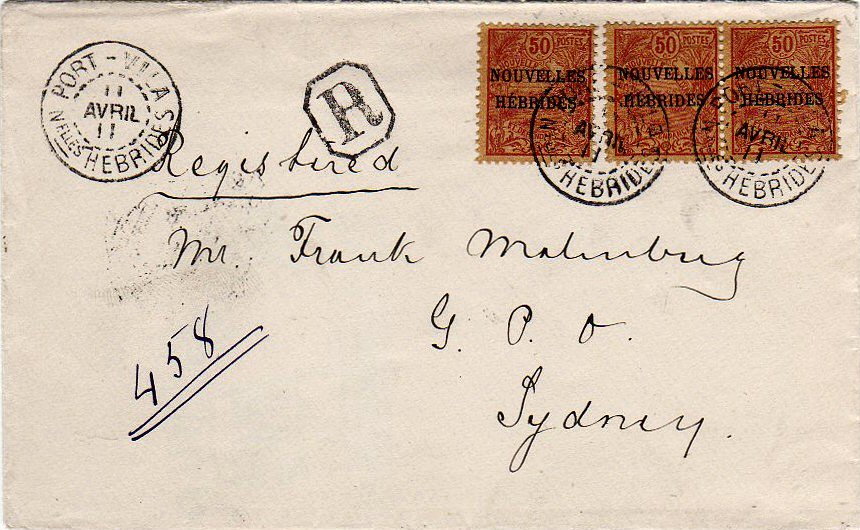 PORT-VILLA
11
AVRIL
11
NELLES HEBRIDES
R
50 POSTES
NOUVELLES
HÉBRIDES
50 POSTES
NOUVELLES
HÉBRIDES
50 POSTES
NOUVELLES
HÉBRIDES
AVRIL
11
HEBRIDES
AVRIL
11
HEBRIDES
Registered
Mr. Frank
G. P. O.
Sydney.
458